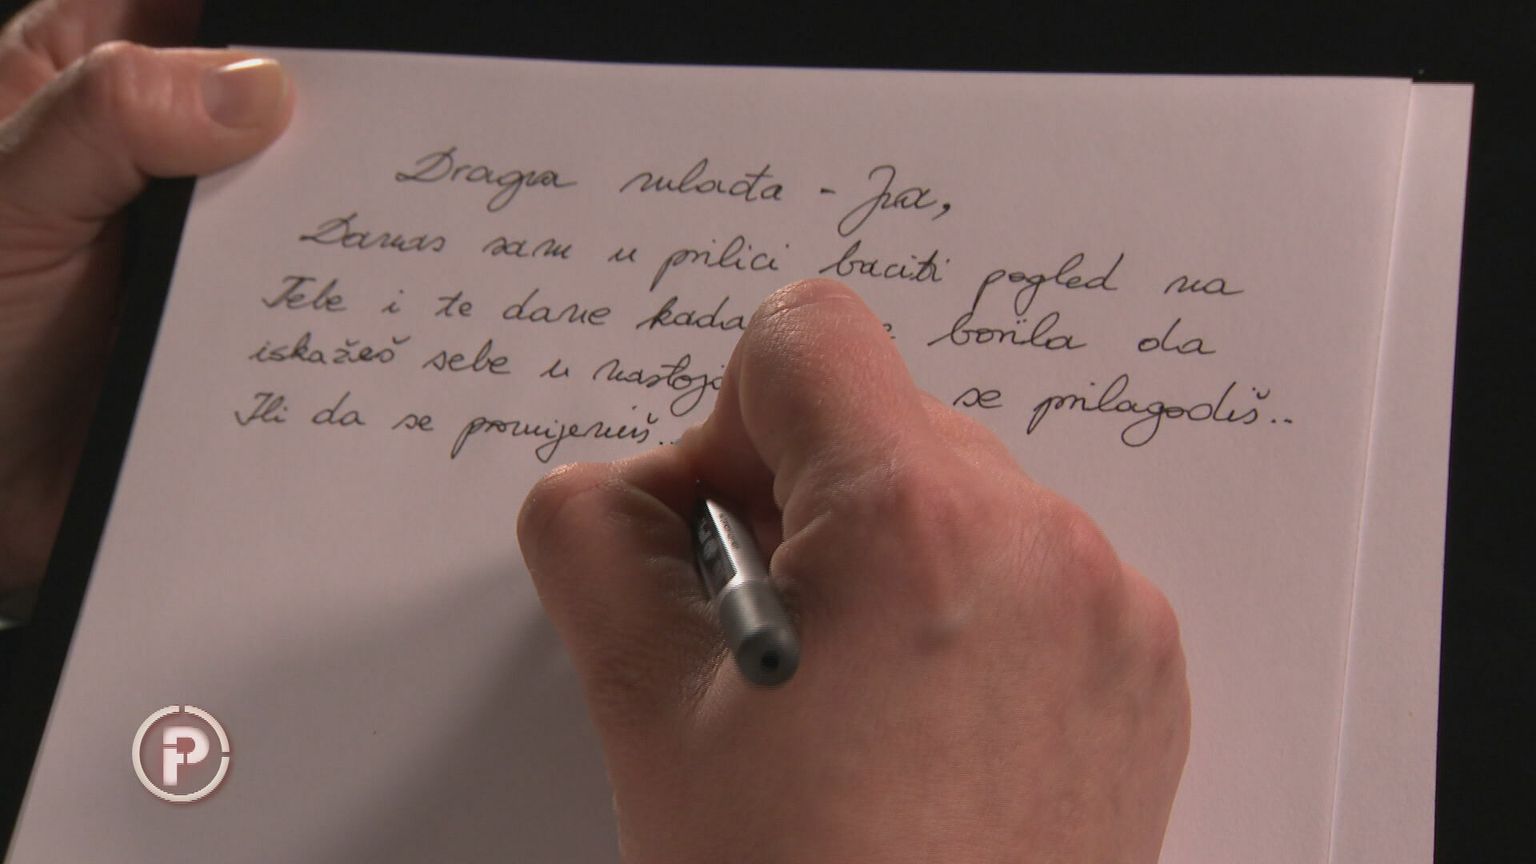 Draga mlađa - Ja,
Danas sam u prilici baciti pogled na
Tebe i te dane kada borila da
iskažeš sebe u se prilagodiš..
Ili da se promijeniš..
P